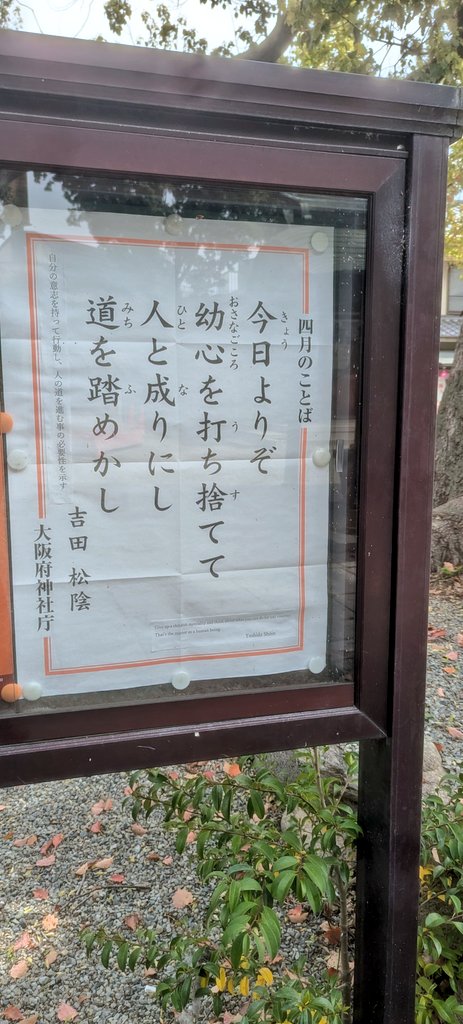 四月のことば
今日よりぞ
きょう
幼心を打ち捨てて
おさなごころ
う
す
人と成りにし
ひと
な
道を踏めかし
みち
ふ
吉田 松陰
自分の意志を持って行動し、人の道を進む事の必要性を示す
大阪府神社庁
That's the master as a human being.
Yoshida Shoin